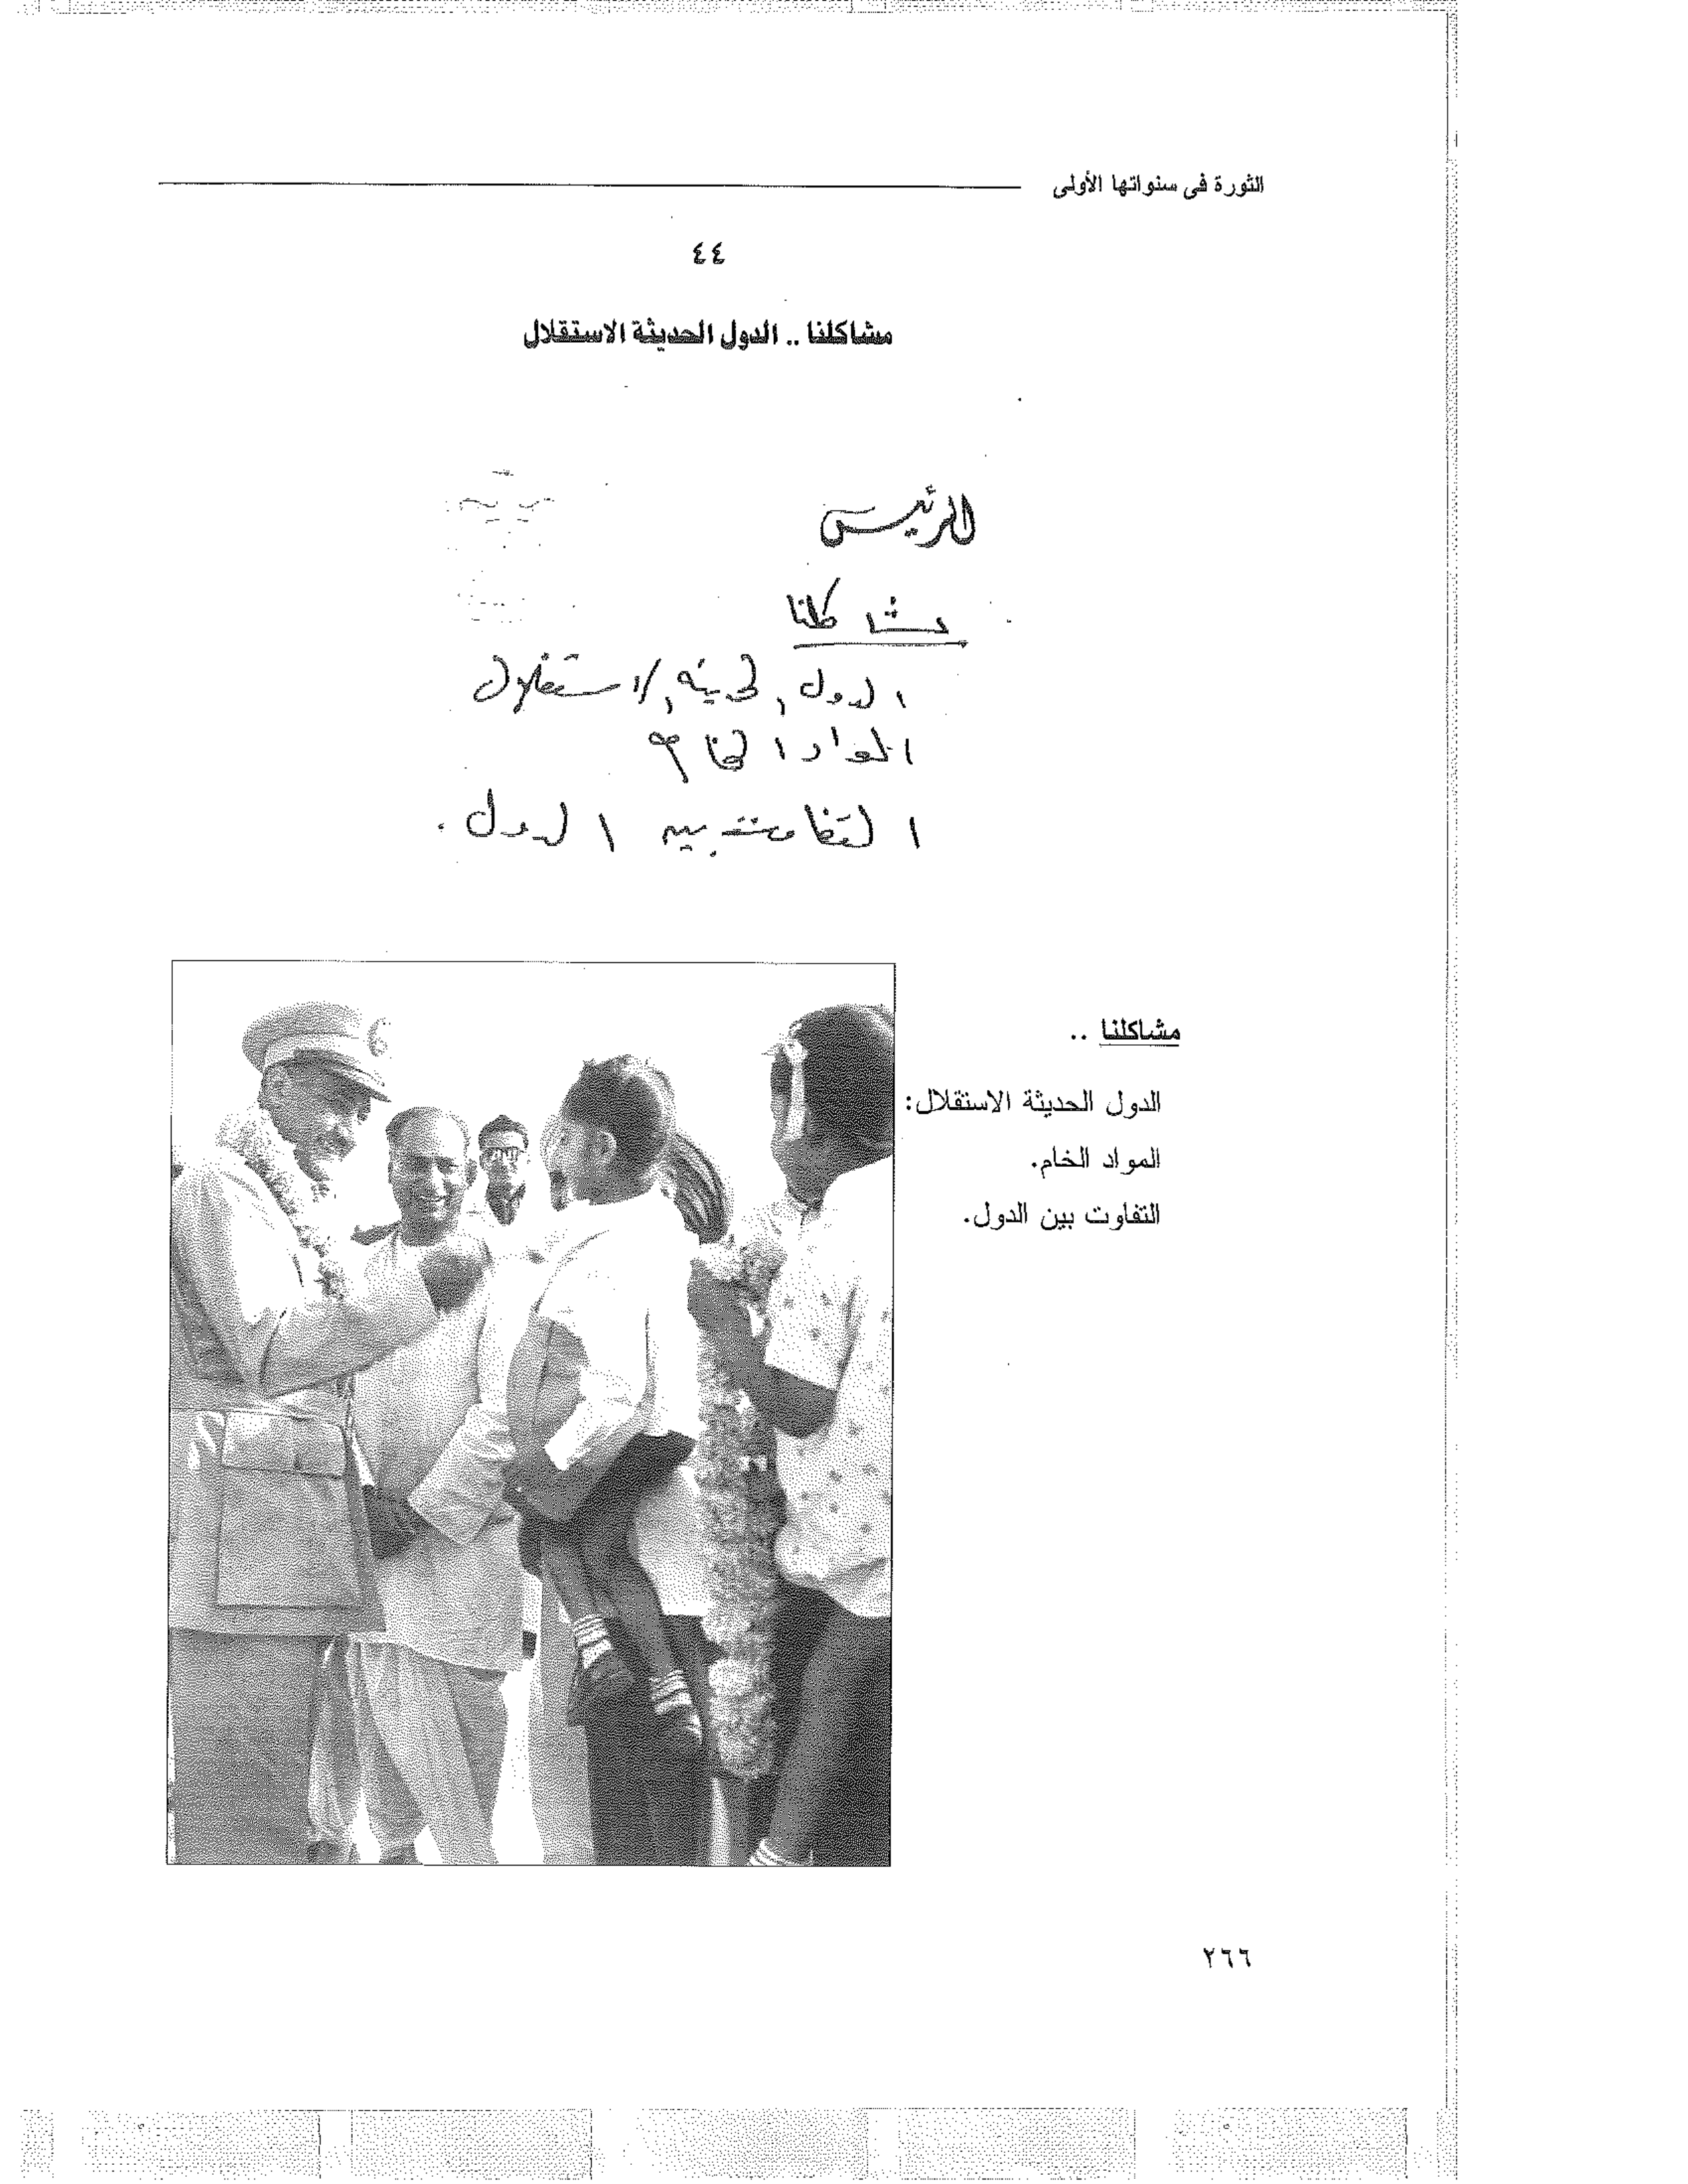 الثورة فى سنواتها الأولى
٤٤
مشاكلنا .. الدول الحديثة الاستقلال
الرئيس
مشاكلنا
الدول الحديثة الاستقلال
المواد الخام
التفاوت بين الدول.
مشاكلنا ..
الدول الحديثة الاستقلال:
المواد الخام.
التفاوت بين الدول.
٢٦٦